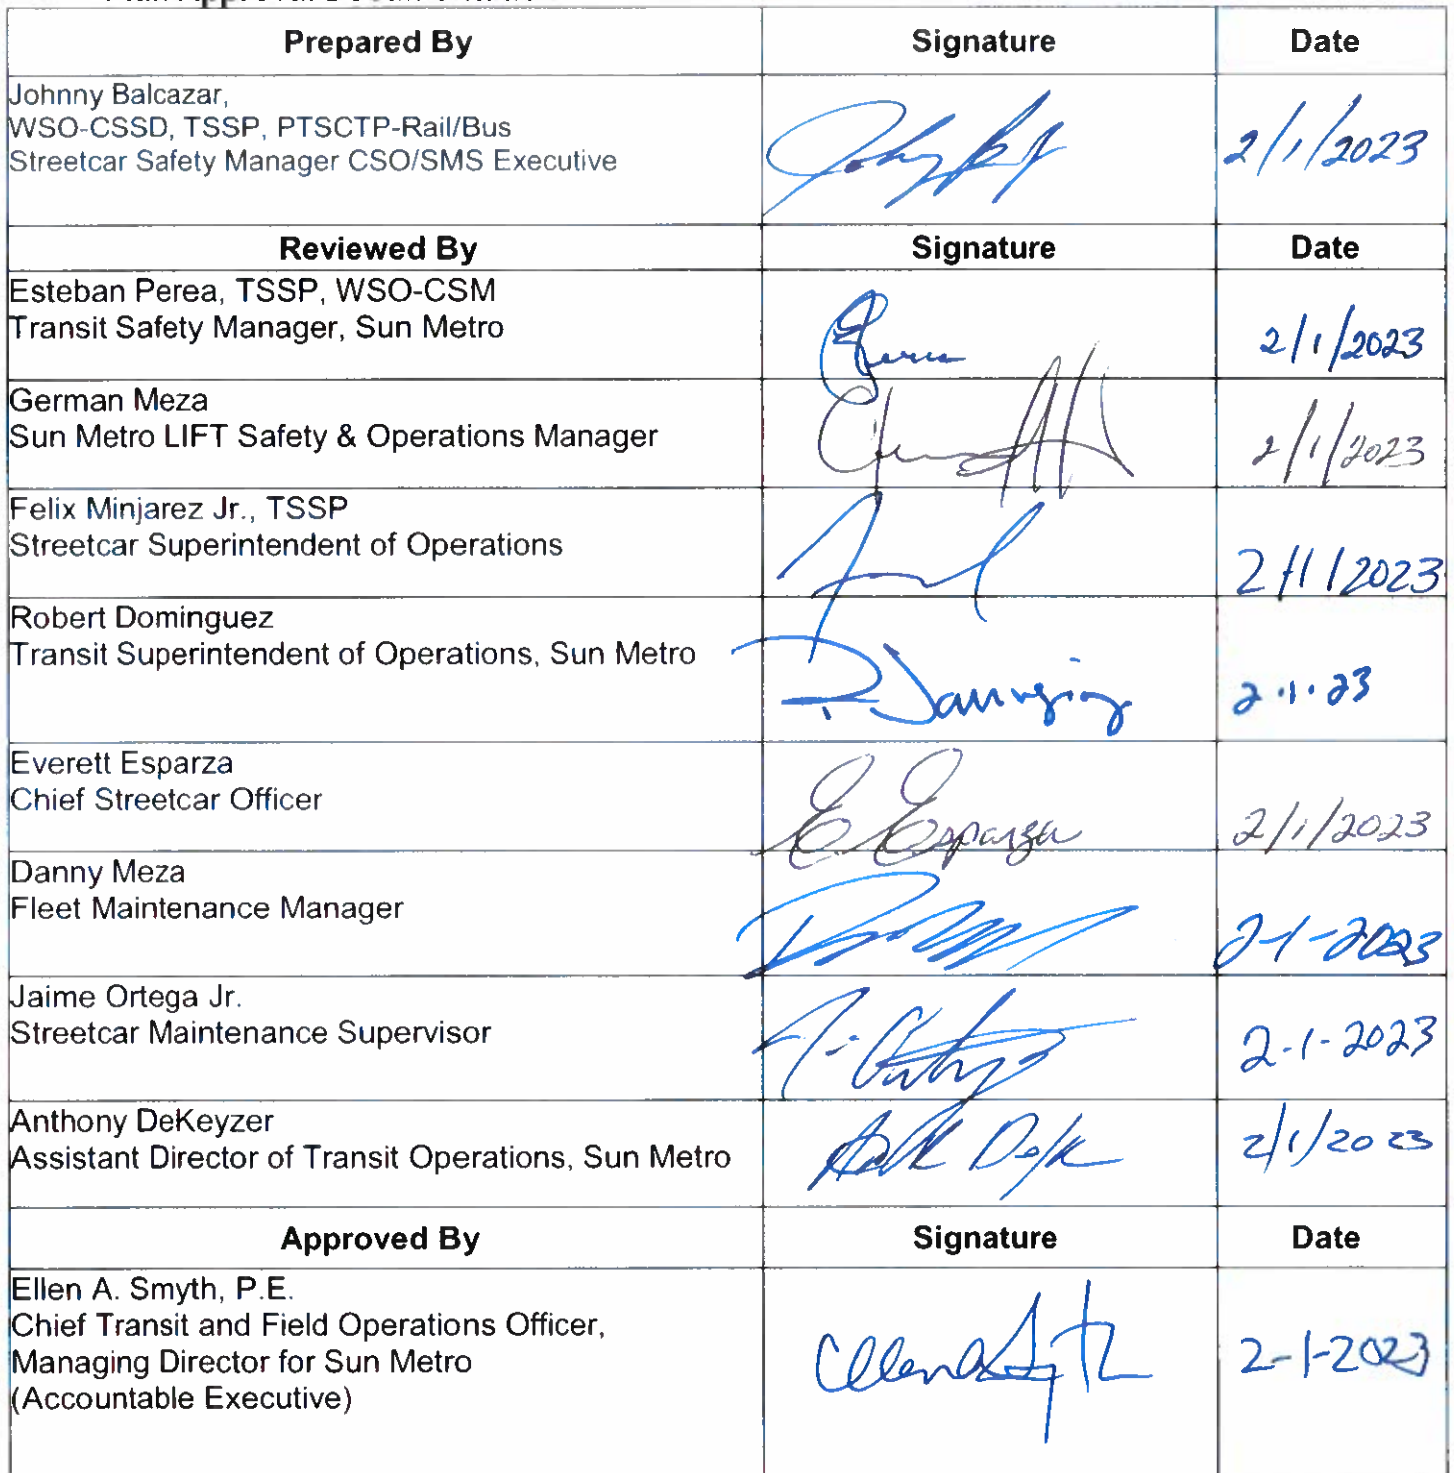 Plan Approval
Prepared By Signature Date
Johnny Balcazar,
WSO-CSSD, TSSP, PTSCTP-Rail/Bus
Streetcar Safety Manager CSO/SMS Executive
2/1/2023
Reviewed By Signature Date
Esteban Perea, TSSP, WSO-CSM
Transit Safety Manager, Sun Metro
2/1/2023
German Meza
Sun Metro LIFT Safety & Operations Manager
2/1/2023
Felix Minjarez Jr., TSSP
Streetcar Superintendent of Operations
2/1/2023
Robert Dominguez
Transit Superintendent of Operations, Sun Metro
2.1.23
Everett Esparza
Chief Streetcar Officer
E Esparza 2/1/2023
Danny Meza
Fleet Maintenance Manager
2-1-2023
Jaime Ortega Jr.
Streetcar Maintenance Supervisor
2-1-2023
Anthony DeKeyzer
Assistant Director of Transit Operations, Sun Metro
2/1/2023
Approved By Signature Date
Ellen A. Smyth, P.E.
Chief Transit and Field Operations Officer,
Managing Director for Sun Metro
(Accountable Executive)
2-1-2023